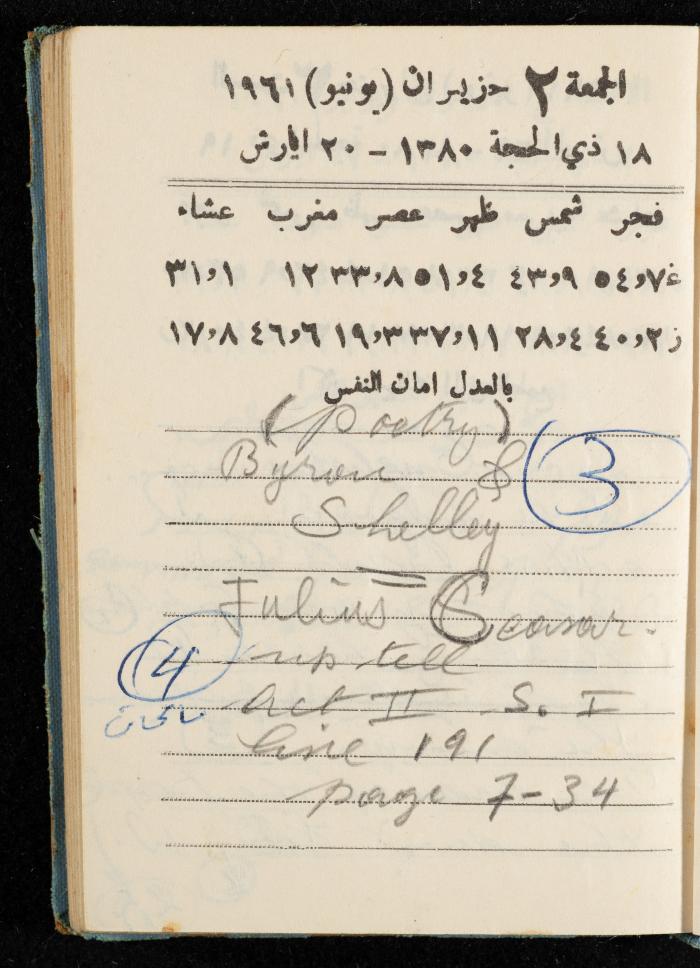 الجمعة ٢ حزيران (يونيو) ١٩٦١
١٨ ذي الحجة ١٣٨٠ – ٢٠ ايارش
فجر شمس ظهر عصر مغرب عشاء
غ ٧و٥٤ ٩و٤٣ ٤و٥١ ٨و٣٣ ١٢ ١و٣١
ز ٢و٤٠ ٤و٢٨ ١١و٣٧ ٣و١٩ ٦و٤٦ ٨و١٧
بالعدل امان النفس
(Poetry)
Byron &
Shelley
3
Julius Ceasar.
4
up tell
act II S. I
line 191
page 7-34